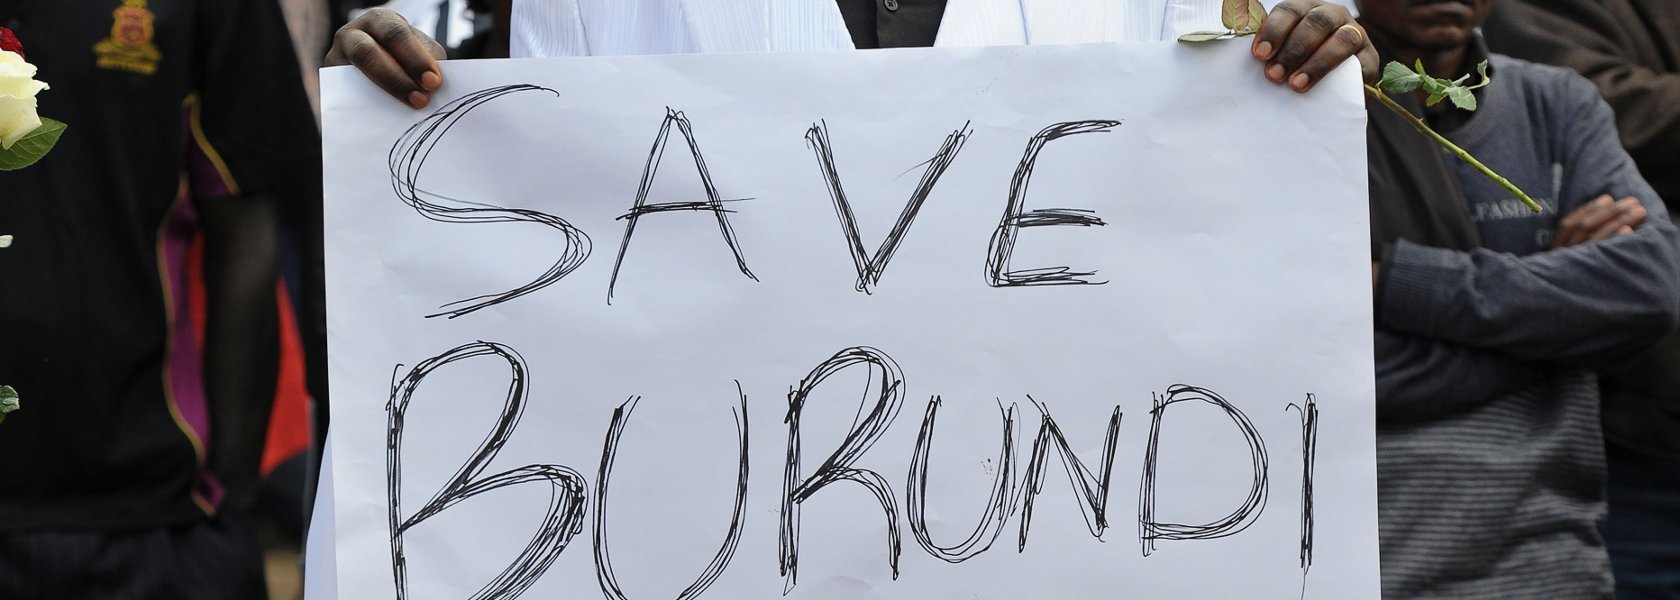 SAVE
BURUNDI
FASHION